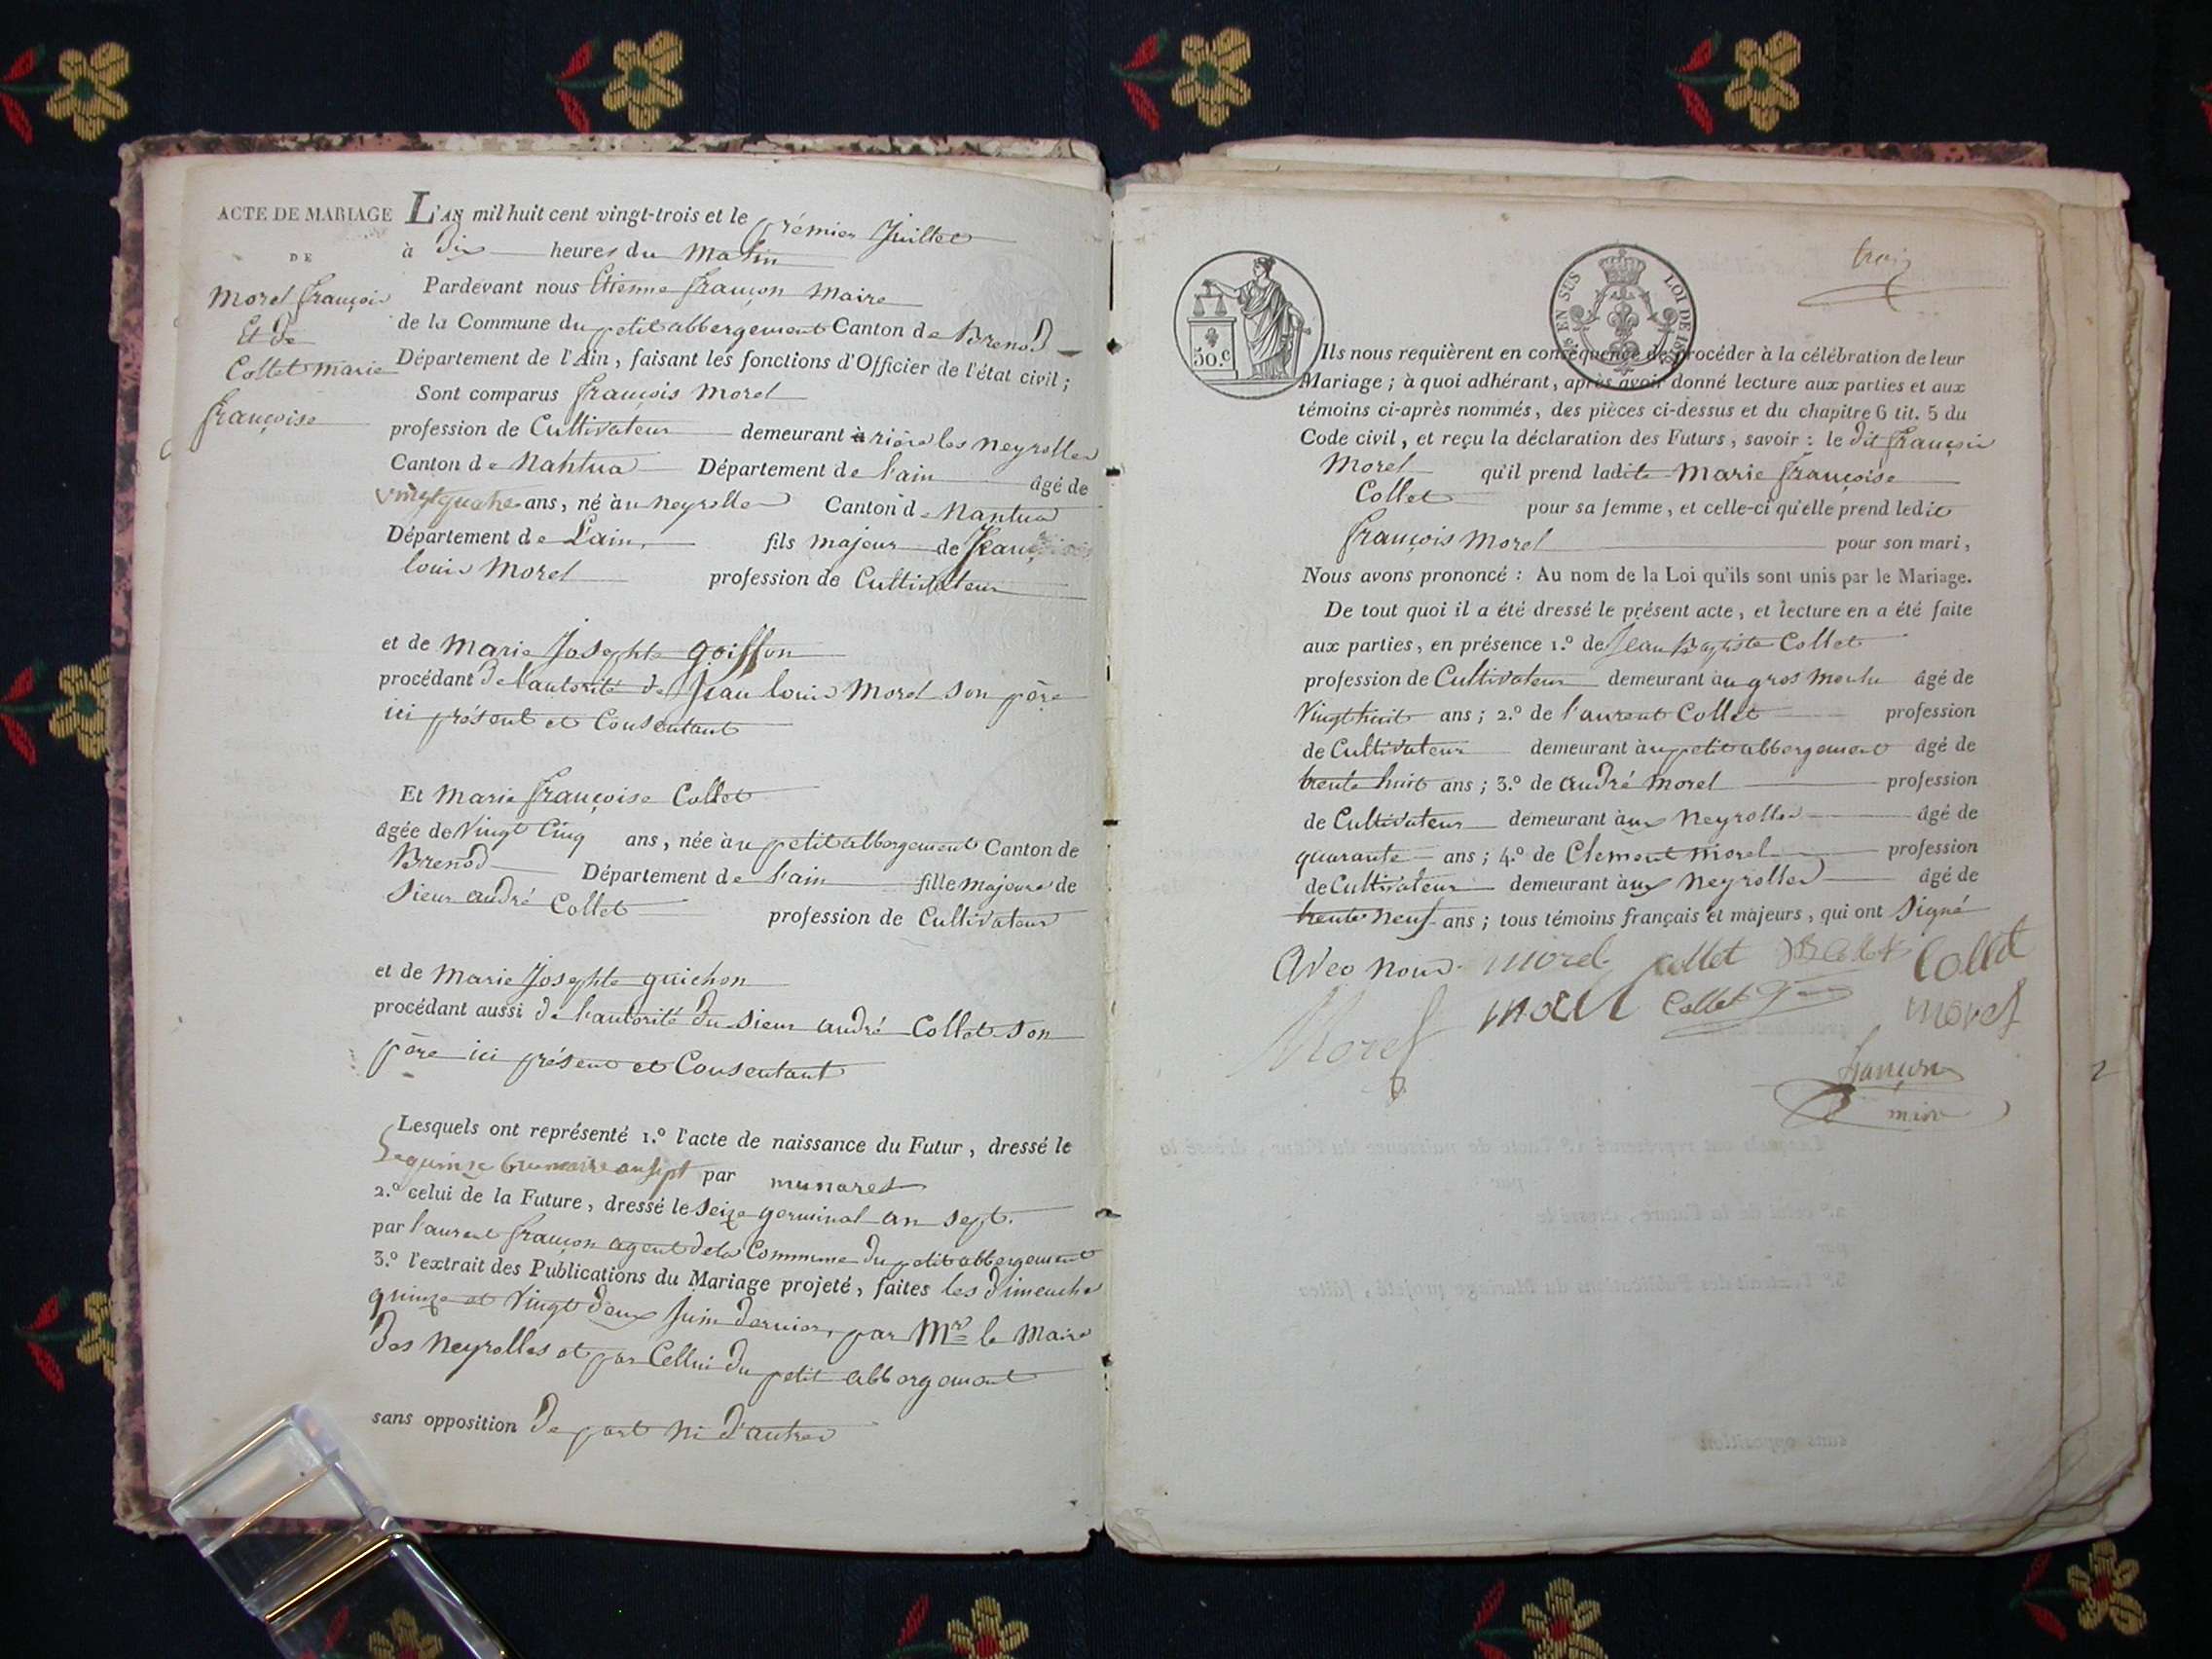 ACTE DE MARIAGE
DE
Morel françois
Et de
Collet marie
françoise
L'AN mil huit cent vingt-trois et le prémier Juillet
à dix heures du matin
Pardevant nous Etienne françon maire
de la Commune du petit abbergement Canton de Brenod
Département de l'Ain, faisant les fonctions d'Officier de l'état civil;
Sont comparus françois Morel
profession de Cultivateur demeurant à rière les neyrolles
Canton de Nantua Département de l'ain âgé de
vingt quatre ans, né à u neyrolles Canton de Nantua
Département de L'ain fils majeur de Jean
louis Morel profession de Cultivateur
et de marie Josephte goiffon
procédant de l'autorité de Jean louis Morel son père
ici présent et Consentant
Et Marie françoise Collet
âgée de Vingt Cinq ans, née à u petit abbergement Canton de
Brenod Département de l'ain fille majeure de
Sieur andré Collet profession de Cultivateur
et de marie Josephte guichon
procédant aussi de l'autorité du Sieur andré Collet son
père ici présent et Consentant
Lesquels ont représenté 1.º l'acte de naissance du Futur, dressé le
Le quinze brumaire an sept par munaret
2.º celui de la Future, dressé le seize germinal an sept.
par laurent françon agent de la Commune du petit abbergement
3.º l'extrait des Publications du Mariage projeté, faites les dimenche
quinze et vingt deux Juin dernier, par Mr le Maire
des neyrolles et par Cellui du petit abbergement
sans opposition de part ni d'autres
trois
50.c
EN SUS LOI DE 1816
Ils nous requièrent en conséquence de procéder à la célébration de leur
Mariage; à quoi adhérant, après avoir donné lecture aux parties et aux
témoins ci-après nommés, des pièces ci-dessus et du chapitre 6 tit. 5 du
Code civil, et reçu la déclaration des Futurs, savoir: le dit françois
Morel qu'il prend ladite Marie françoise
Collet pour sa femme, et celle-ci qu'elle prend ledit
françois Morel pour son mari,
Nous avons prononcé: Au nom de la Loi qu'ils sont unis par le Mariage.
De tout quoi il a été dressé le présent acte, et lecture en a été faite
aux parties, en présence 1.º de Jean Baptiste Collet
profession de Cultivateur demeurant à u gros âgé de
Vingt huit ans; 2.º de laurent Collet profession
de Cultivateur demeurant à u petit abbergement âgé de
trente huit ans; 3.º de andré Morel profession
de Cultivateur demeurant à ux Neyrolles âgé de
quarante ans; 4.º de Clement Morel profession
de Cultivateur demeurant à ux Neyrolles âgé de
trente neuf ans; tous témoins français et majeurs, qui ont signé
avec nous. morel collet JB Collet Collet
Morel morel Collet morel
françon
maire
2